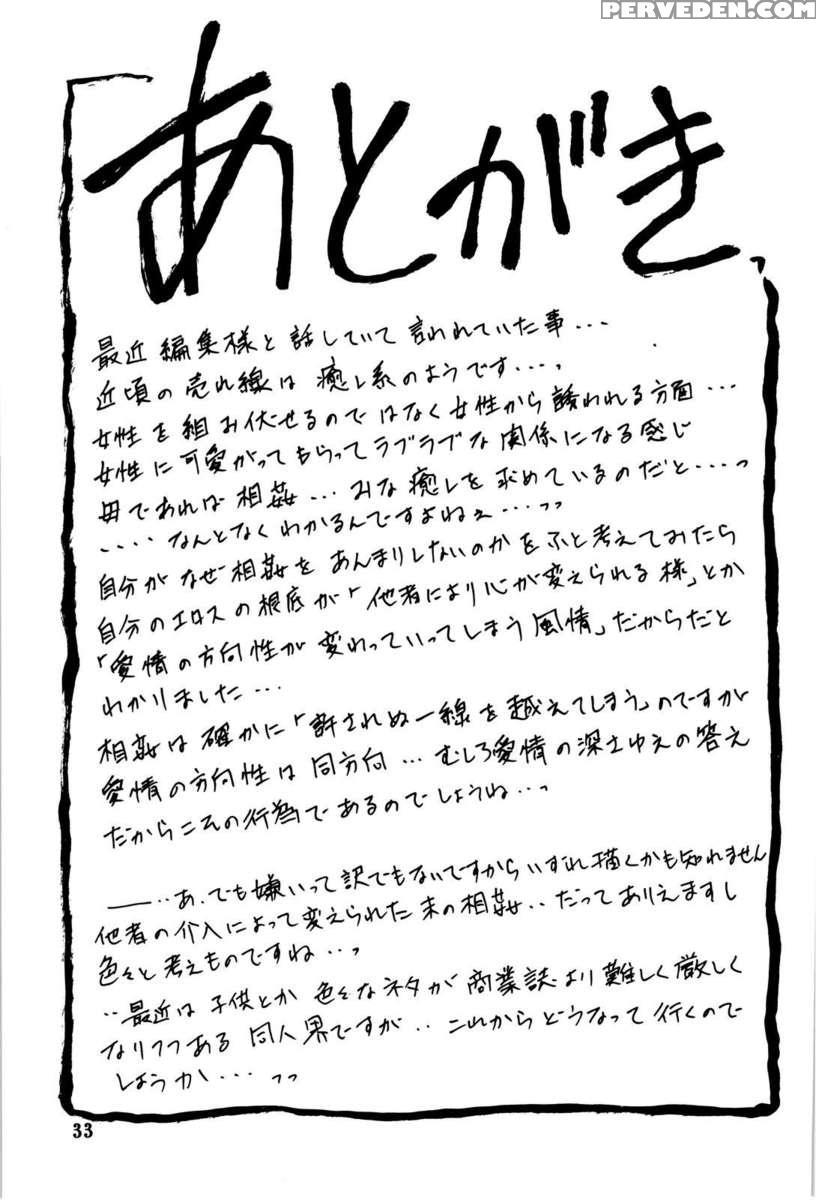 PERVEDEN.COM
「あとがき」
最近 編集様と話していて 言われていた事・・・
近頃の売れ線は 癒し系のようです・・・っ
女性を組み伏せるのではなく女性から誘われる方面・・・
女性に可愛がってもらってラブラブな関係になる感じ
母であれば相姦・・・みな癒しを求めているのだと・・・っ
・・・・なんとなくわかるんですよねぇ・・・っっ
自分がなぜ相姦をあんまりしないのかをふと考えてみたら
自分のエロスの根底が「他者により心が変えられる様」とか
「愛情の方向性が変わっていってしまう風情」だからだと
わかりました・・・
相姦は確かに「許されぬ一線を越えてしまう」のですが
愛情の方向性は同方向・・・むしろ愛情の深さゆえの答え
だからこその行為であるのでしょうね・・っ
――・・あ、でも嫌いって訳でもないですからいずれ描くかも知れません
他者の介入によって変えられた末の相姦・・だってありえますし
色々と考えものですね・・っ
・・最近は子供とか色々なネタが商業誌より難しく厳しく
なりつつある同人界ですが・・これからどうなって行くので
しょうか・・・っっ
33